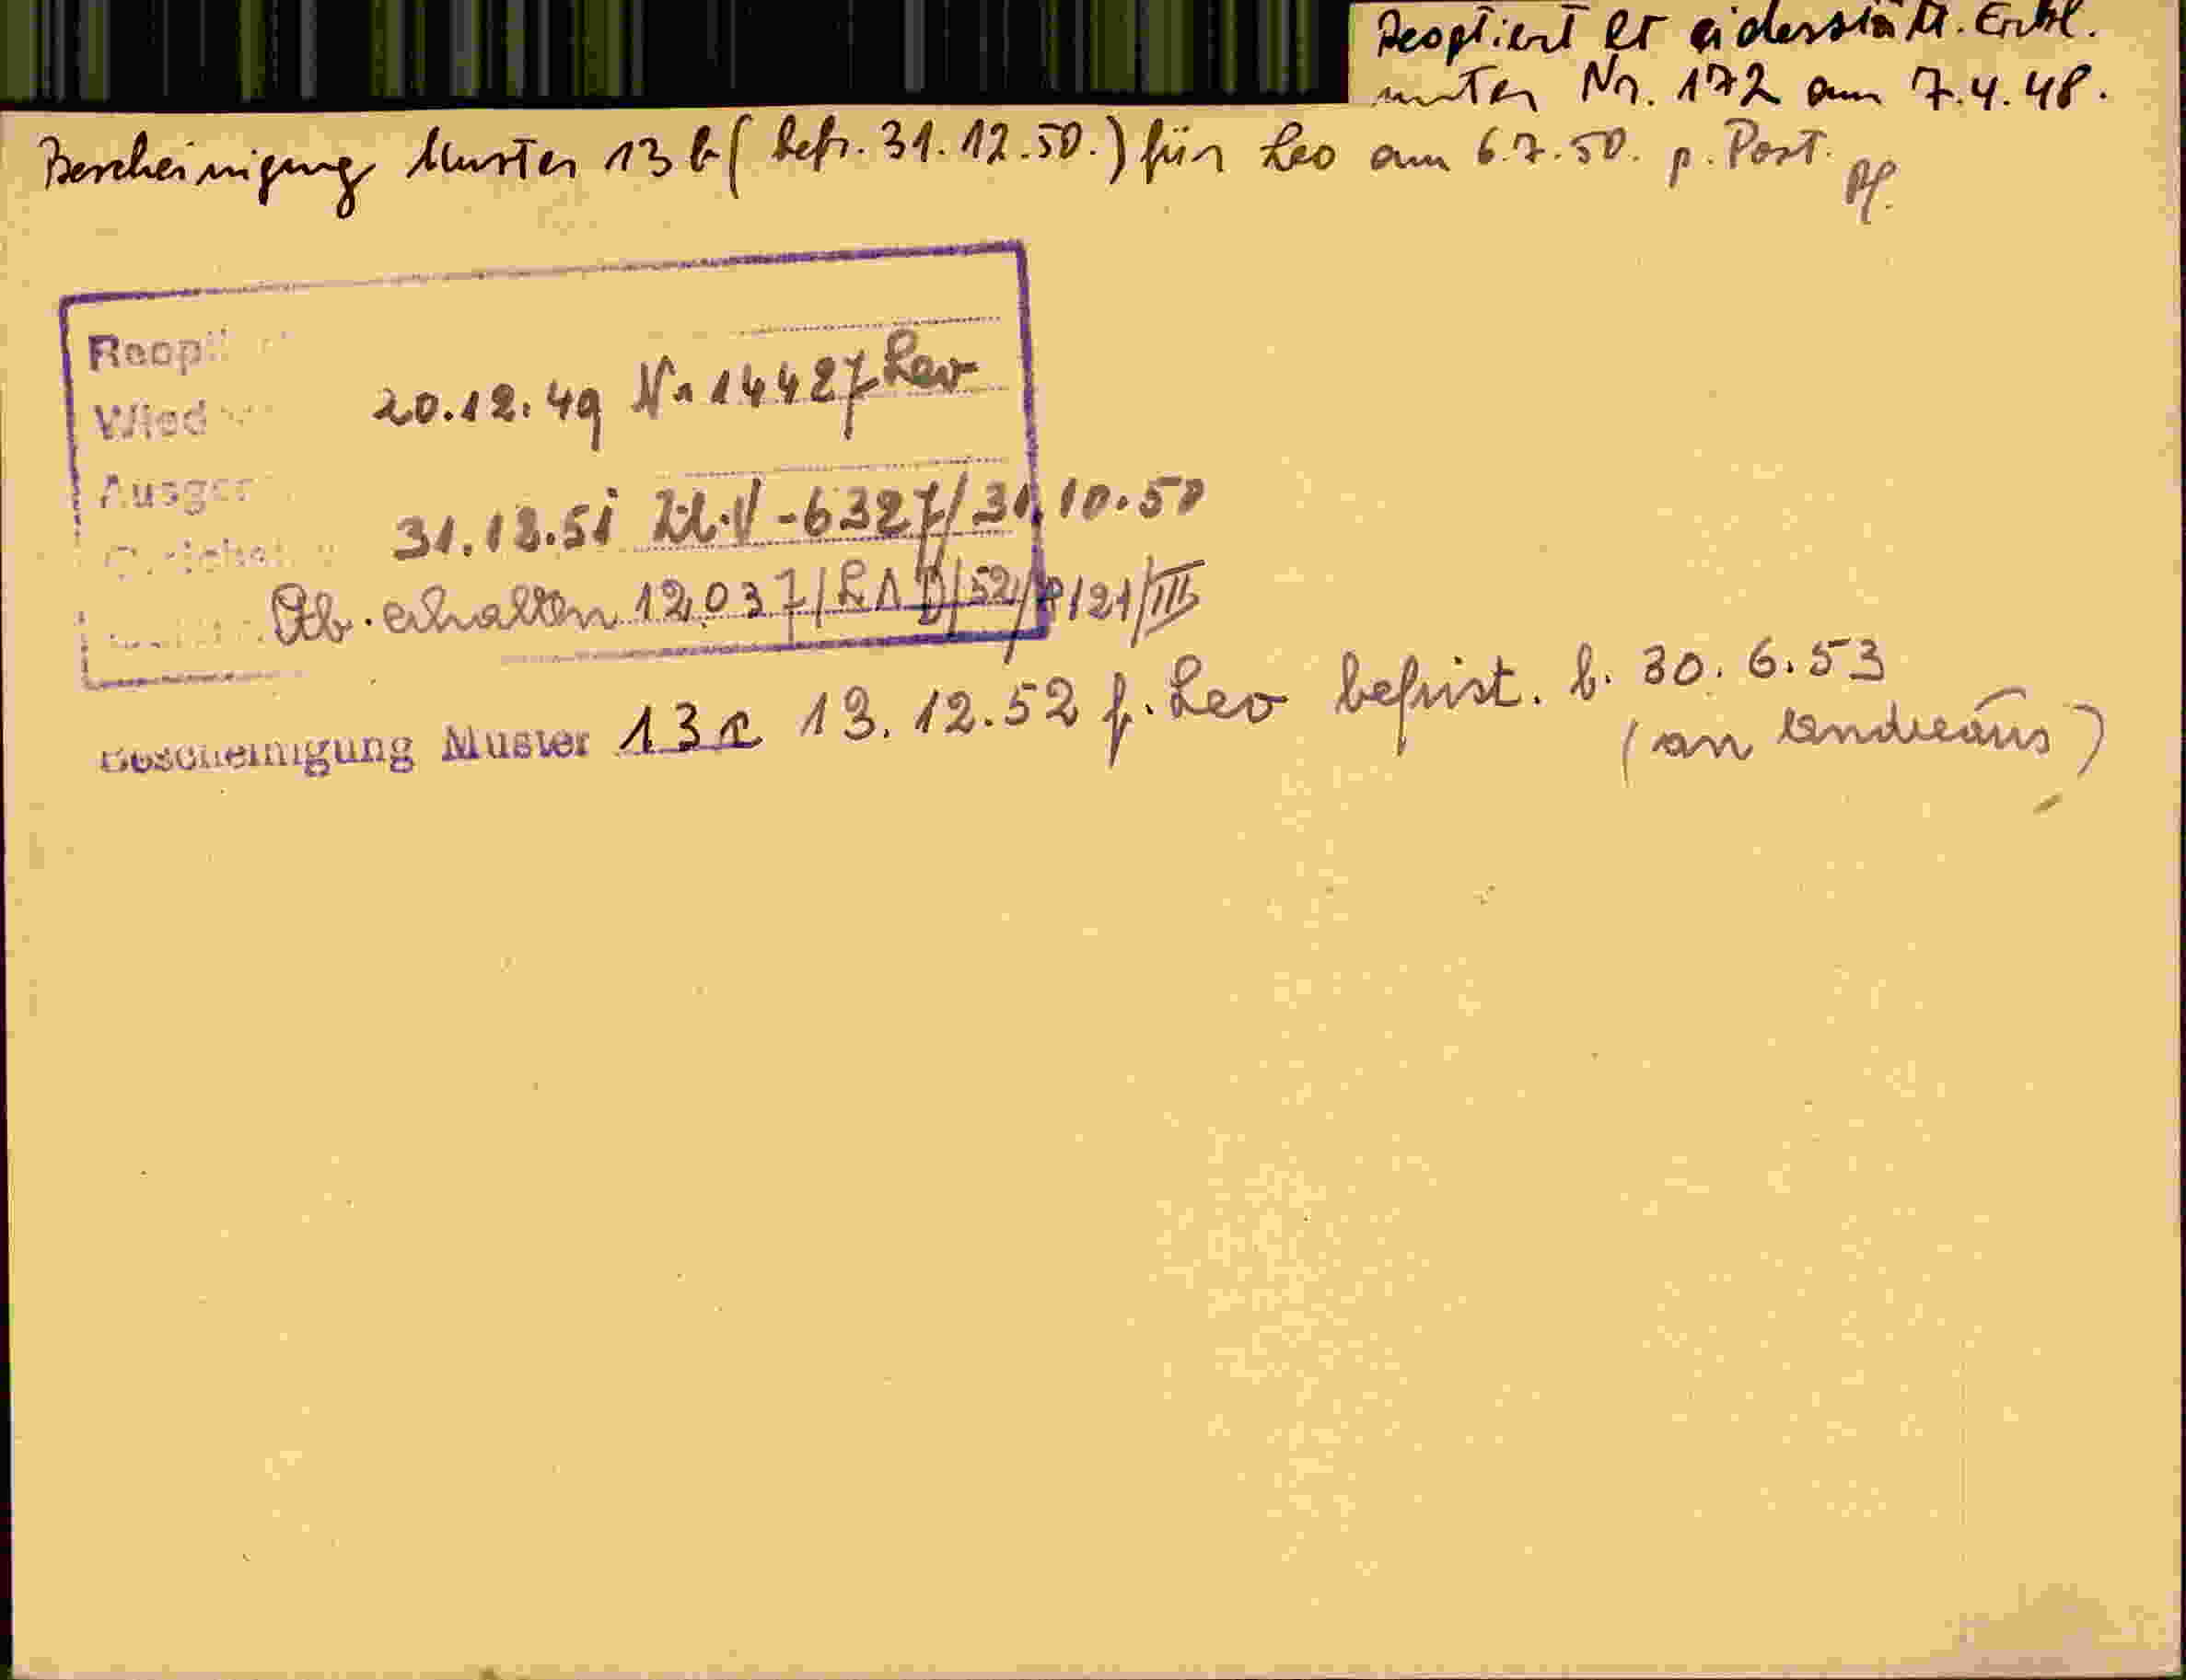 Reoptiert lt eidesstatt. Erkl.
unter Nr. 172 am 7.4.48.
Bescheinigung Muster 13 b (befr. 31.12.50.) für Leo am 6.7.50. p. Post.
20.12.49 Nr 14427 Leo
31.12.51 Zl. V-6327/31.10.50
Stb. erhalten 12.037/LAD/52/ /21/III
Bescheinigung Muster 13 a 13.12.52 f. Leo befrist. b. 30.6.53
(an Andreaus)